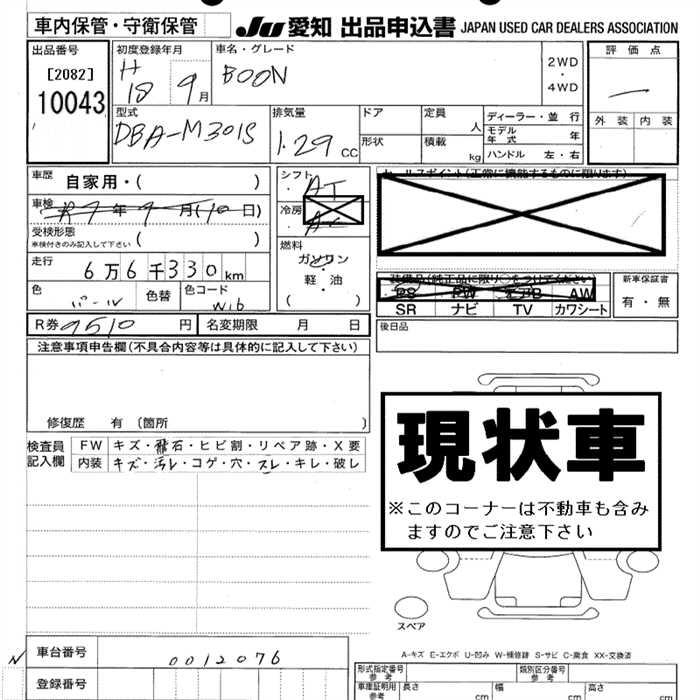 車内保管・守衛保管 JU 愛知 出品申込書 JAPAN USED CAR DEALERS ASSOCIATION
出品番号 [2082] 10043
初度登録年月 H 18 9月
車名・グレード BOON
2WD・4WD
評価点 —
外装 内装
型式 DBA-M301S
排気量 1.29 CC
ドア 定員 人
形状 積載 kg
ディーラー・並行
モデル年式 年
ハンドル 左・右
車歴 自家用・( )
車検 R7年9月(10日)
受検形態 ( )
※車検付きのみ記入して下さい
走行 6万6千330km
色 パール 色替 色コード W16
シフト AT
冷房 AC
燃料 ガソリン
軽・油
( )
セールスポイント(正常に機能するものに限ります)
装備品(純正品に限り○をつけてください)
PS PW エアB AW
SR ナビ TV カワシート
新車保証書 有・無
R券 9510 円 名変期限 月 日
後日品
注意事項申告欄(不具合内容等は具体的に記入して下さい)
修復歴 有 〔箇所 〕
検査員記入欄
FW キズ・飛石・ヒビ割・リペア跡・X要
内装 キズ・汚レ・コゲ・穴・スレ・キレ・破レ
現状車
※このコーナーは不動車も含み
ますのでご注意下さい
スペア
A-キズ E-エクボ U-凹み W-補修跡 S-サビ C-腐食 XX-交換済
N
車台番号 0012076
登録番号
形式指定番号 参考
類別区分番号 参考
車庫証明用 参考 長さ cm 幅 cm 高さ cm